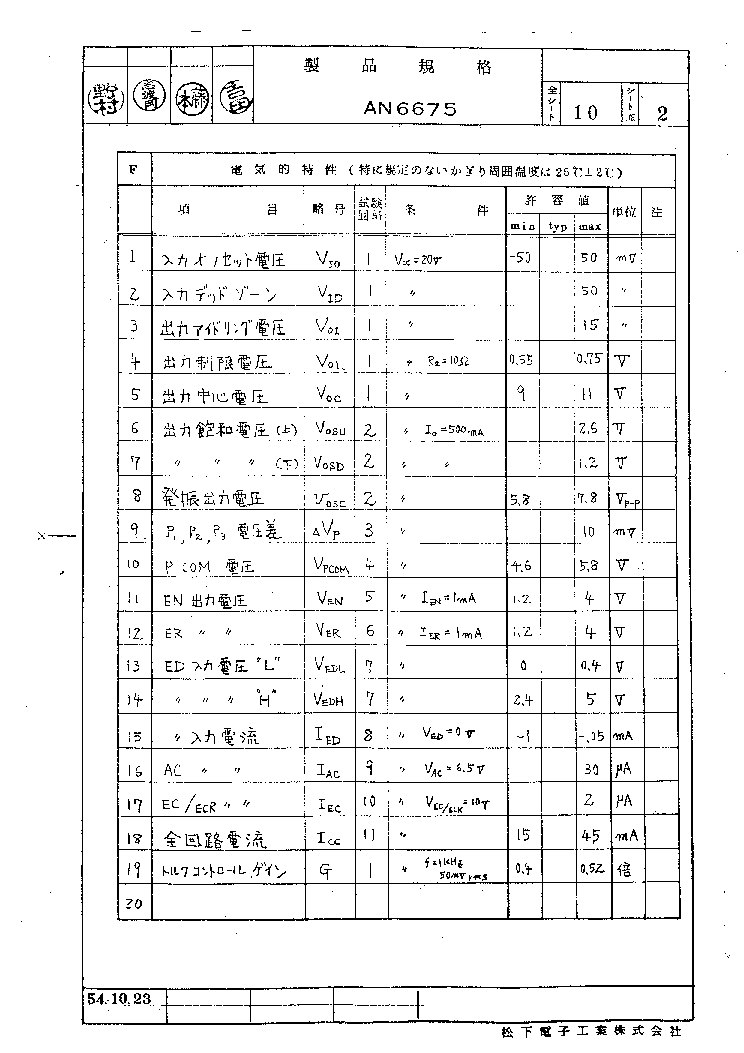 製品規格
AN6675
全シート 10 シート 2
F 電気的特性（特に規定のないかぎり周囲温度は25℃±2℃）
項目 略号 試験回路 条件 許容値 単位 注
min typ max
1 入力オフセット電圧 VIO 1 Vcc=20V -50 50 mV
2 入力デッドゾーン VID 1 〃 50 〃
3 出力アイドリング電圧 VOI 1 〃 15 〃
4 出力制限電圧 VOL 1 〃 R2=10Ω 0.55 0.75 V
5 出力中心電圧 VOC 1 〃 9 11 V
6 出力飽和電圧(上) VOSU 2 〃 Io=500mA 2.6 V
7 〃 〃 〃 (下) VOSD 2 〃 〃 1.2 V
8 発振出力電圧 VOSC 2 〃 5.8 7.8 VP-P
9 P1, P2, P3 電圧差 ΔVP 3 〃 10 mV
10 P COM 電圧 VPCOM 4 〃 4.6 5.8 V
11 EN 出力電圧 VEN 5 〃 IEN=1mA 1.2 4 V
12 ER 〃 〃 VER 6 〃 IER=1mA 1.2 4 V
13 ED入力電圧"L" VEDL 7 〃 0 0.4 V
14 〃 〃 〃 "H" VEDH 7 〃 2.4 5 V
15 〃入力電流 IED 8 〃 VED=0V -1 -.05 mA
16 AC 〃 〃 IAC 9 〃 VAC=6.5V 30 μA
17 EC/ECR 〃 〃 IEC 10 〃 VEC/ECR=10V 2 μA
18 全回路電流 Icc 11 〃 15 45 mA
19 トルクコントロールゲイン G 1 〃 f=1kHz 50mVrms 0.4 0.52 倍
20
54.10.23
松下電子工業株式会社